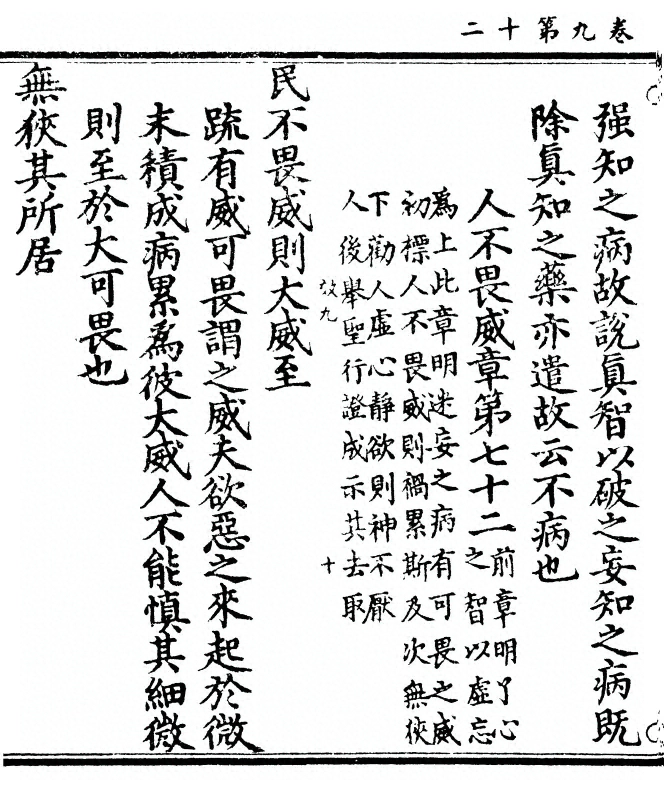 卷九第十二
强知之病故說眞智以破之妄知之病既
除眞知之藥亦遣故云不病也
人不畏威章第七十二
前章明了心
之智以虛忘
爲上此章明迷妄之病有可畏之威
初標人不畏威則禍累斯及次無狹
下勸人虛心靜欲則神不厭
人後舉聖行證成示其去取
故九
十
民不畏威則大威至
疏有威可畏謂之威夫欲惡之來起於微
末積成病累爲彼大威人不能慎其細微
則至於大可畏也
無狹其所居